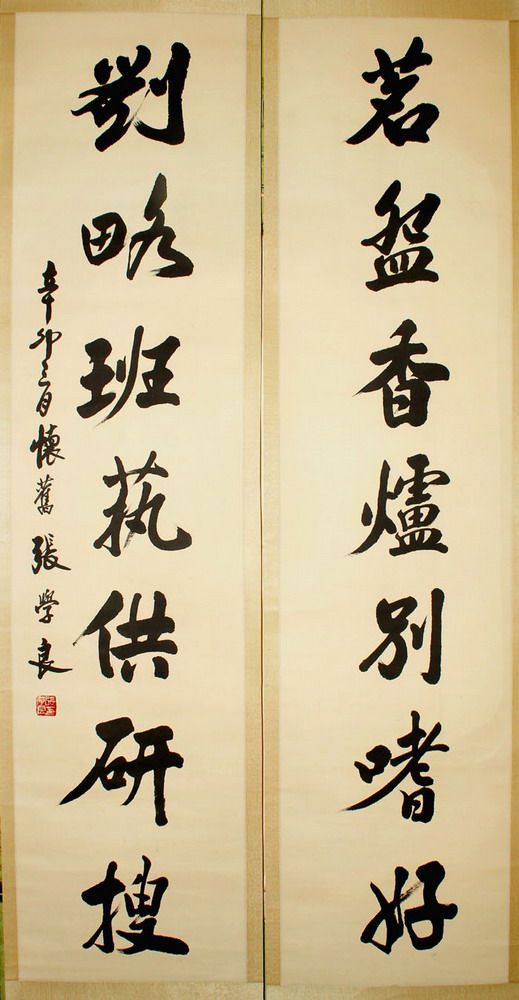 茗盌香爐別嗜好
劉略班蓺供研搜
辛卯三月懷舊張學良